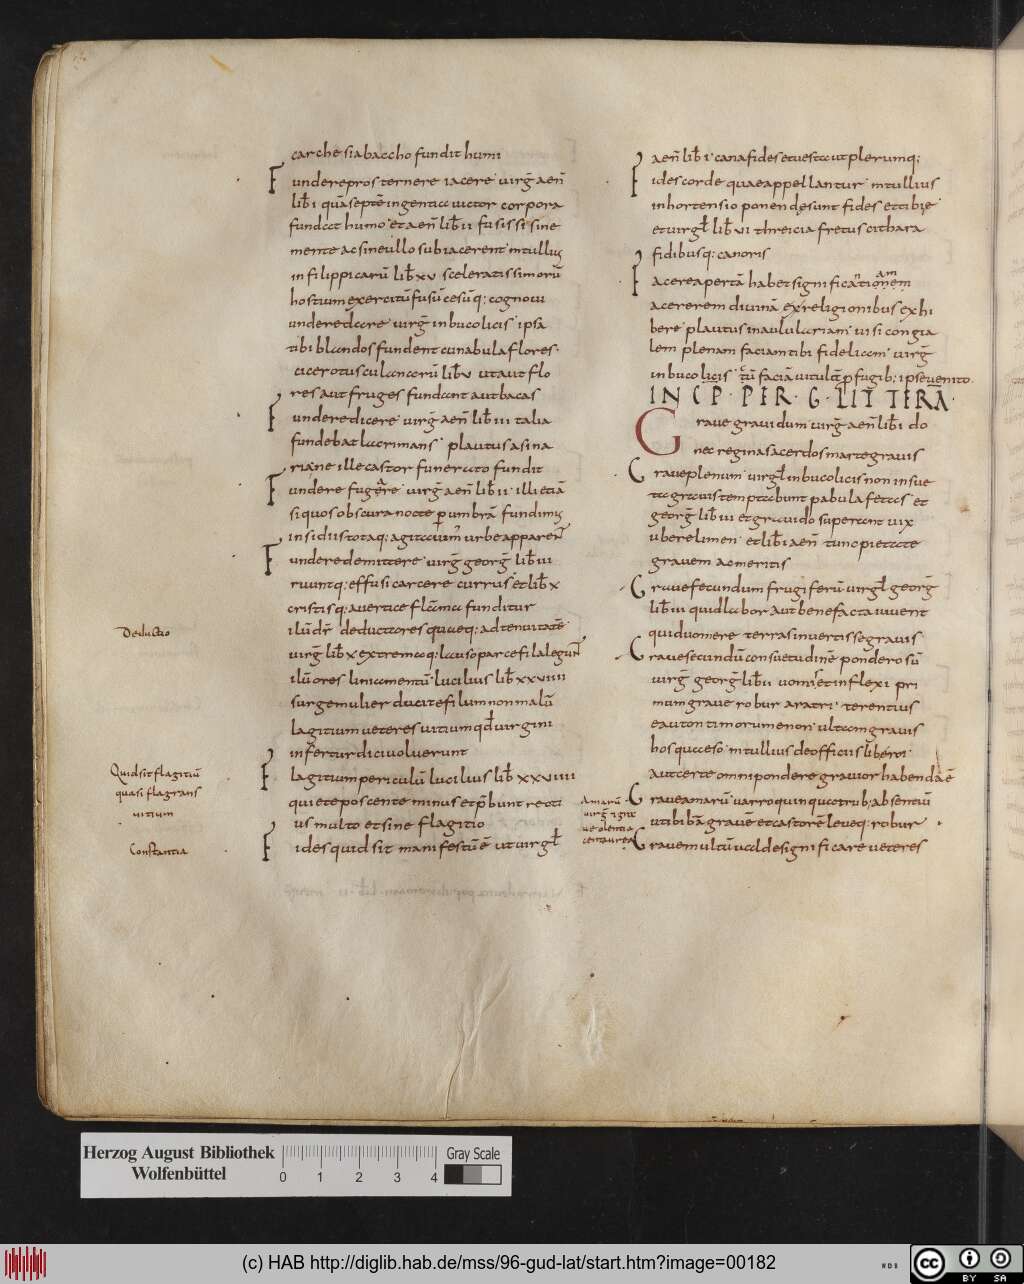 carchesia baccho fundit humi
Fundere prosternere iacere virg̅ aen̅
lib̅ i quā septē ingentia victor corpora
fundat humo et aen̅ lib̅ ii fusi sine
mente ac sine ullo sub iacerent mtullius
in filippicarū lib̅ xv sceleratissimorū
hostium exercitū fusū cesūq; cognovi
undere dare virg̅ in bucolicis ipsa
tibi blandos fundent cunabula flores
cicero tusculanarū lib̅ v ut aut flo
res aut fruges fundant aut bacas
Fundere dicere virg̅ aen̅ lib̅ iii talia
fundebat lacrimans plautus asina
riane ille castor funerato fundit
Fundere fugere virg̅ aen̅ lib̅ ii illi etiā
si quos obscura nocte p umbrā fundimus
insidiis totaq; agitavim urbe apparent
Fundere demittere virg̅ georg̅ lib̅ iii
ruuntq; effusi carcere currus et lib̅ x
cristisq; avertice flāma funditur
ilūdr̅ deductores quaeq; ad tenuitatē
virg̅ lib̅ x extremaq; lauso parce fila legunt
ilū ores liniamentū lucilius lib̅ xxviiii
surge mulier duc it e filum non malū
lagitium veteres vitium qd̅ virgini
infertur dici voluerunt
Flagitium periculū lucilius lib̅ xxviiii
quiete poscente minus et p̅bunt recti
us multo et sine flagitio
Fides quid sit manifestū ē ut virgl̅
Deductio
Quid sit flagitiū
quasi flagrans
vitium
Constantia
aen̅ lib̅ i cana fides et vesta ut plerumq;
Fides corde quae appellantur mtullius
in hortensio ponendesunt fides et tibię
et virgl̅ lib̅ vi threicia fretus cithara
fidibusq; canoris
Facere apertā habet significationem
am
facere rem divinā ex religionibus exhi
bere plautus in aulularia mi visi congia
lem plenam faciam tibi fideliam virg̅
in bucolicis cū faciā vitula p frugib; ipse venito
INCP PER G LITTERĀ
Grave gravidum virg̅ aen̅ lib̅ i do
nec regina sacerdos marte gravis
Grave plenum virgl̅ in bucolicis non insue
ta gravis temptabunt pabula fetas et
georg̅ lib̅ iii et gravido superant vix
ubere limen et lib̅ i aen̅ tunc pietate
gravem ac meritis
Grave fecundum frugiferū virgl̅ georg̅
lib̅ iii quid labor aut benefacta iuvent
quid vomere terras invertisse gravis
Grave secundū consuetudinē ponderosū
virg̅ georg̅ lib̅ i vomis et inflexi pri
mum grave robur aratri terentius
eauton timorumenon ultaam gravis
hos quaeso mtullius de officiis liberoi
aut certe omni pondere gravior habenda ē
Grave amarū varro quinquatrib; absentiū
ut ibi bā gravē et castorē leveq; robur
Gravem ultū val designificare veteres
Amarū
virg̅ igne
ve olentia
centaurea
Herzog August Bibliothek
Wolfenbüttel
0 1 2 3 4
Gray Scale
(c) HAB http://diglib.hab.de/mss/96-gud-lat/start.htm?image=00182
WDB
cc BY SA